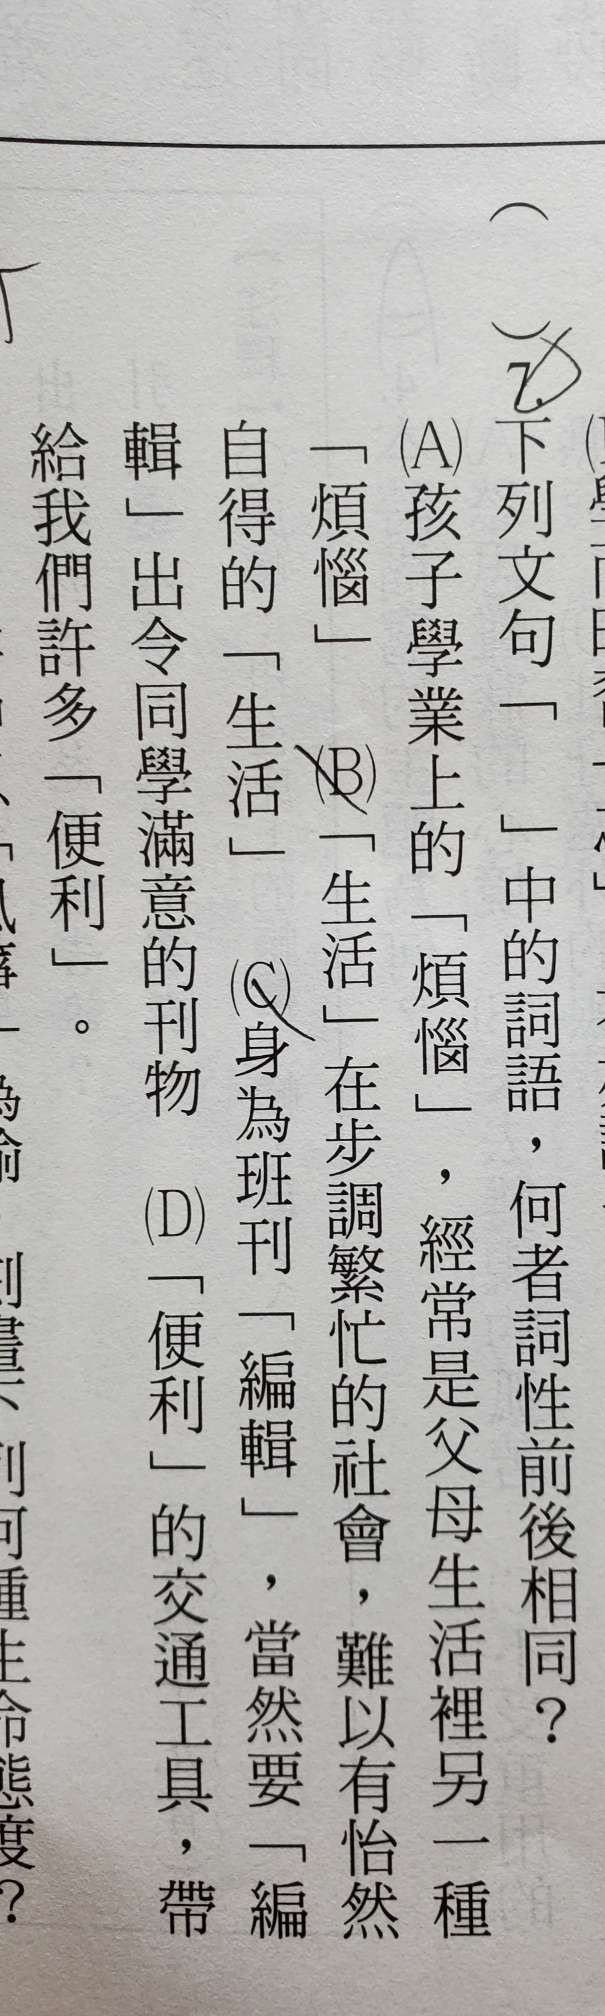 ( )7.下列文句「　」中的詞語，何者詞性前後相同？
(A)孩子學業上的「煩惱」，經常是父母生活裡另一種
「煩惱」　(B)「生活」在步調繁忙的社會，難以有怡然
自得的「生活」　(C)身為班刊「編輯」，當然要「編
輯」出令同學滿意的刊物　(D)「便利」的交通工具，帶
給我們許多「便利」。
為喻，刻畫下列何種生命態度？